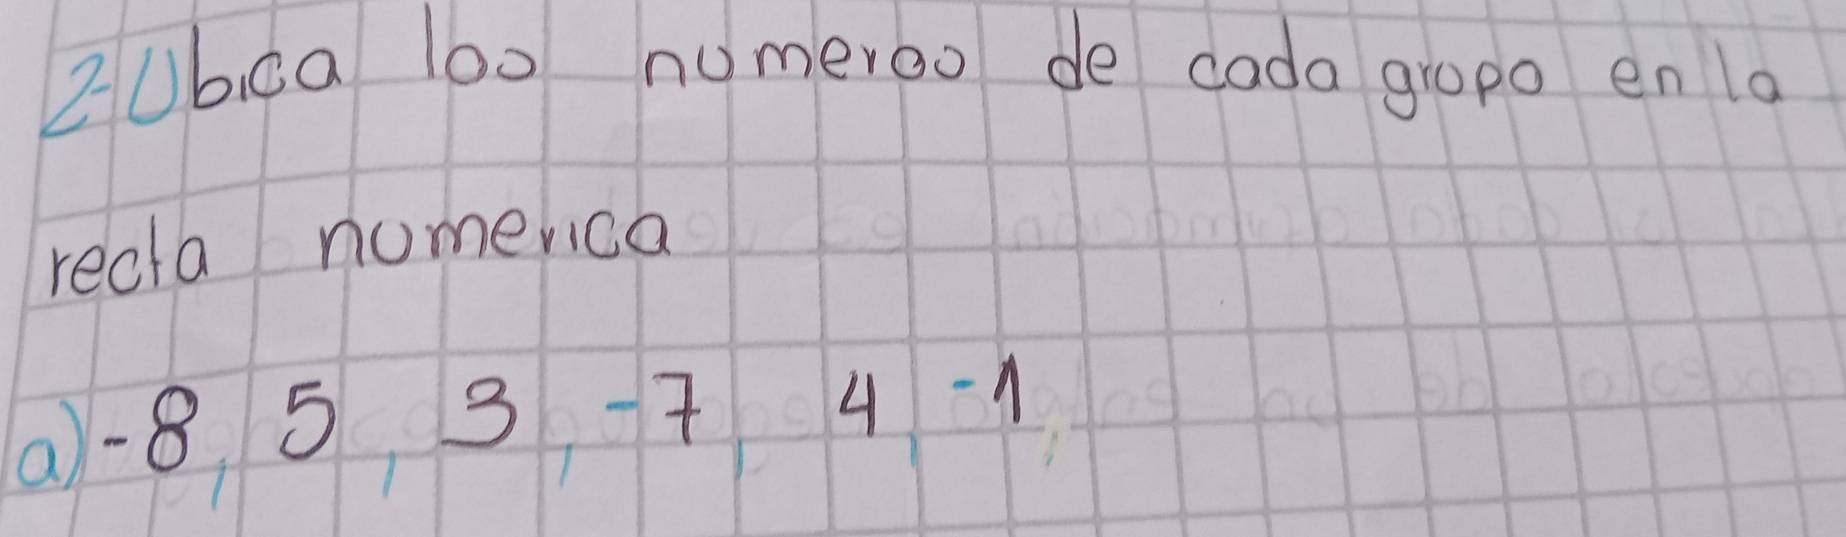 2-Ubica los numeros de cada grupo en la
recta numerica
a) -8, 5, 3, -7, 4, -1,